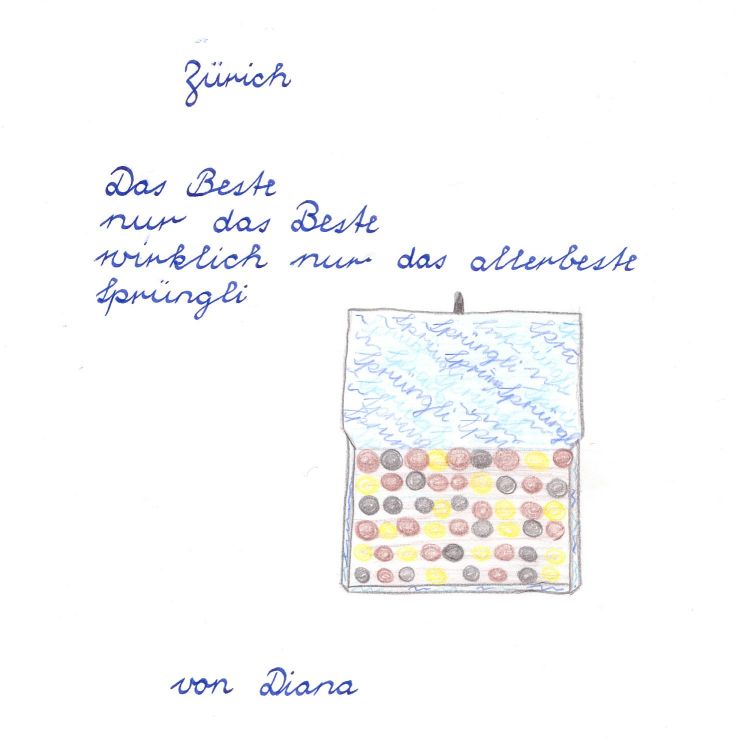 Zürich
Das Beste
nur das Beste
wirklich nur das allerbeste
Sprüngli
Sprüngli
Sprüngli
Sprüngli
von Diana